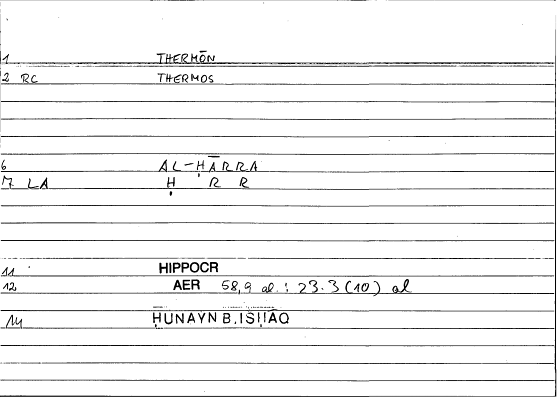 1 THERMŌN
2 RC THERMOS
6 AL-ḤĀRRA
7 LA Ḥ R R
11 HIPPOCR
12 AER 58,9 al. : 23.3 (10) al
14 ḤUNAYN B. ISḤĀQ